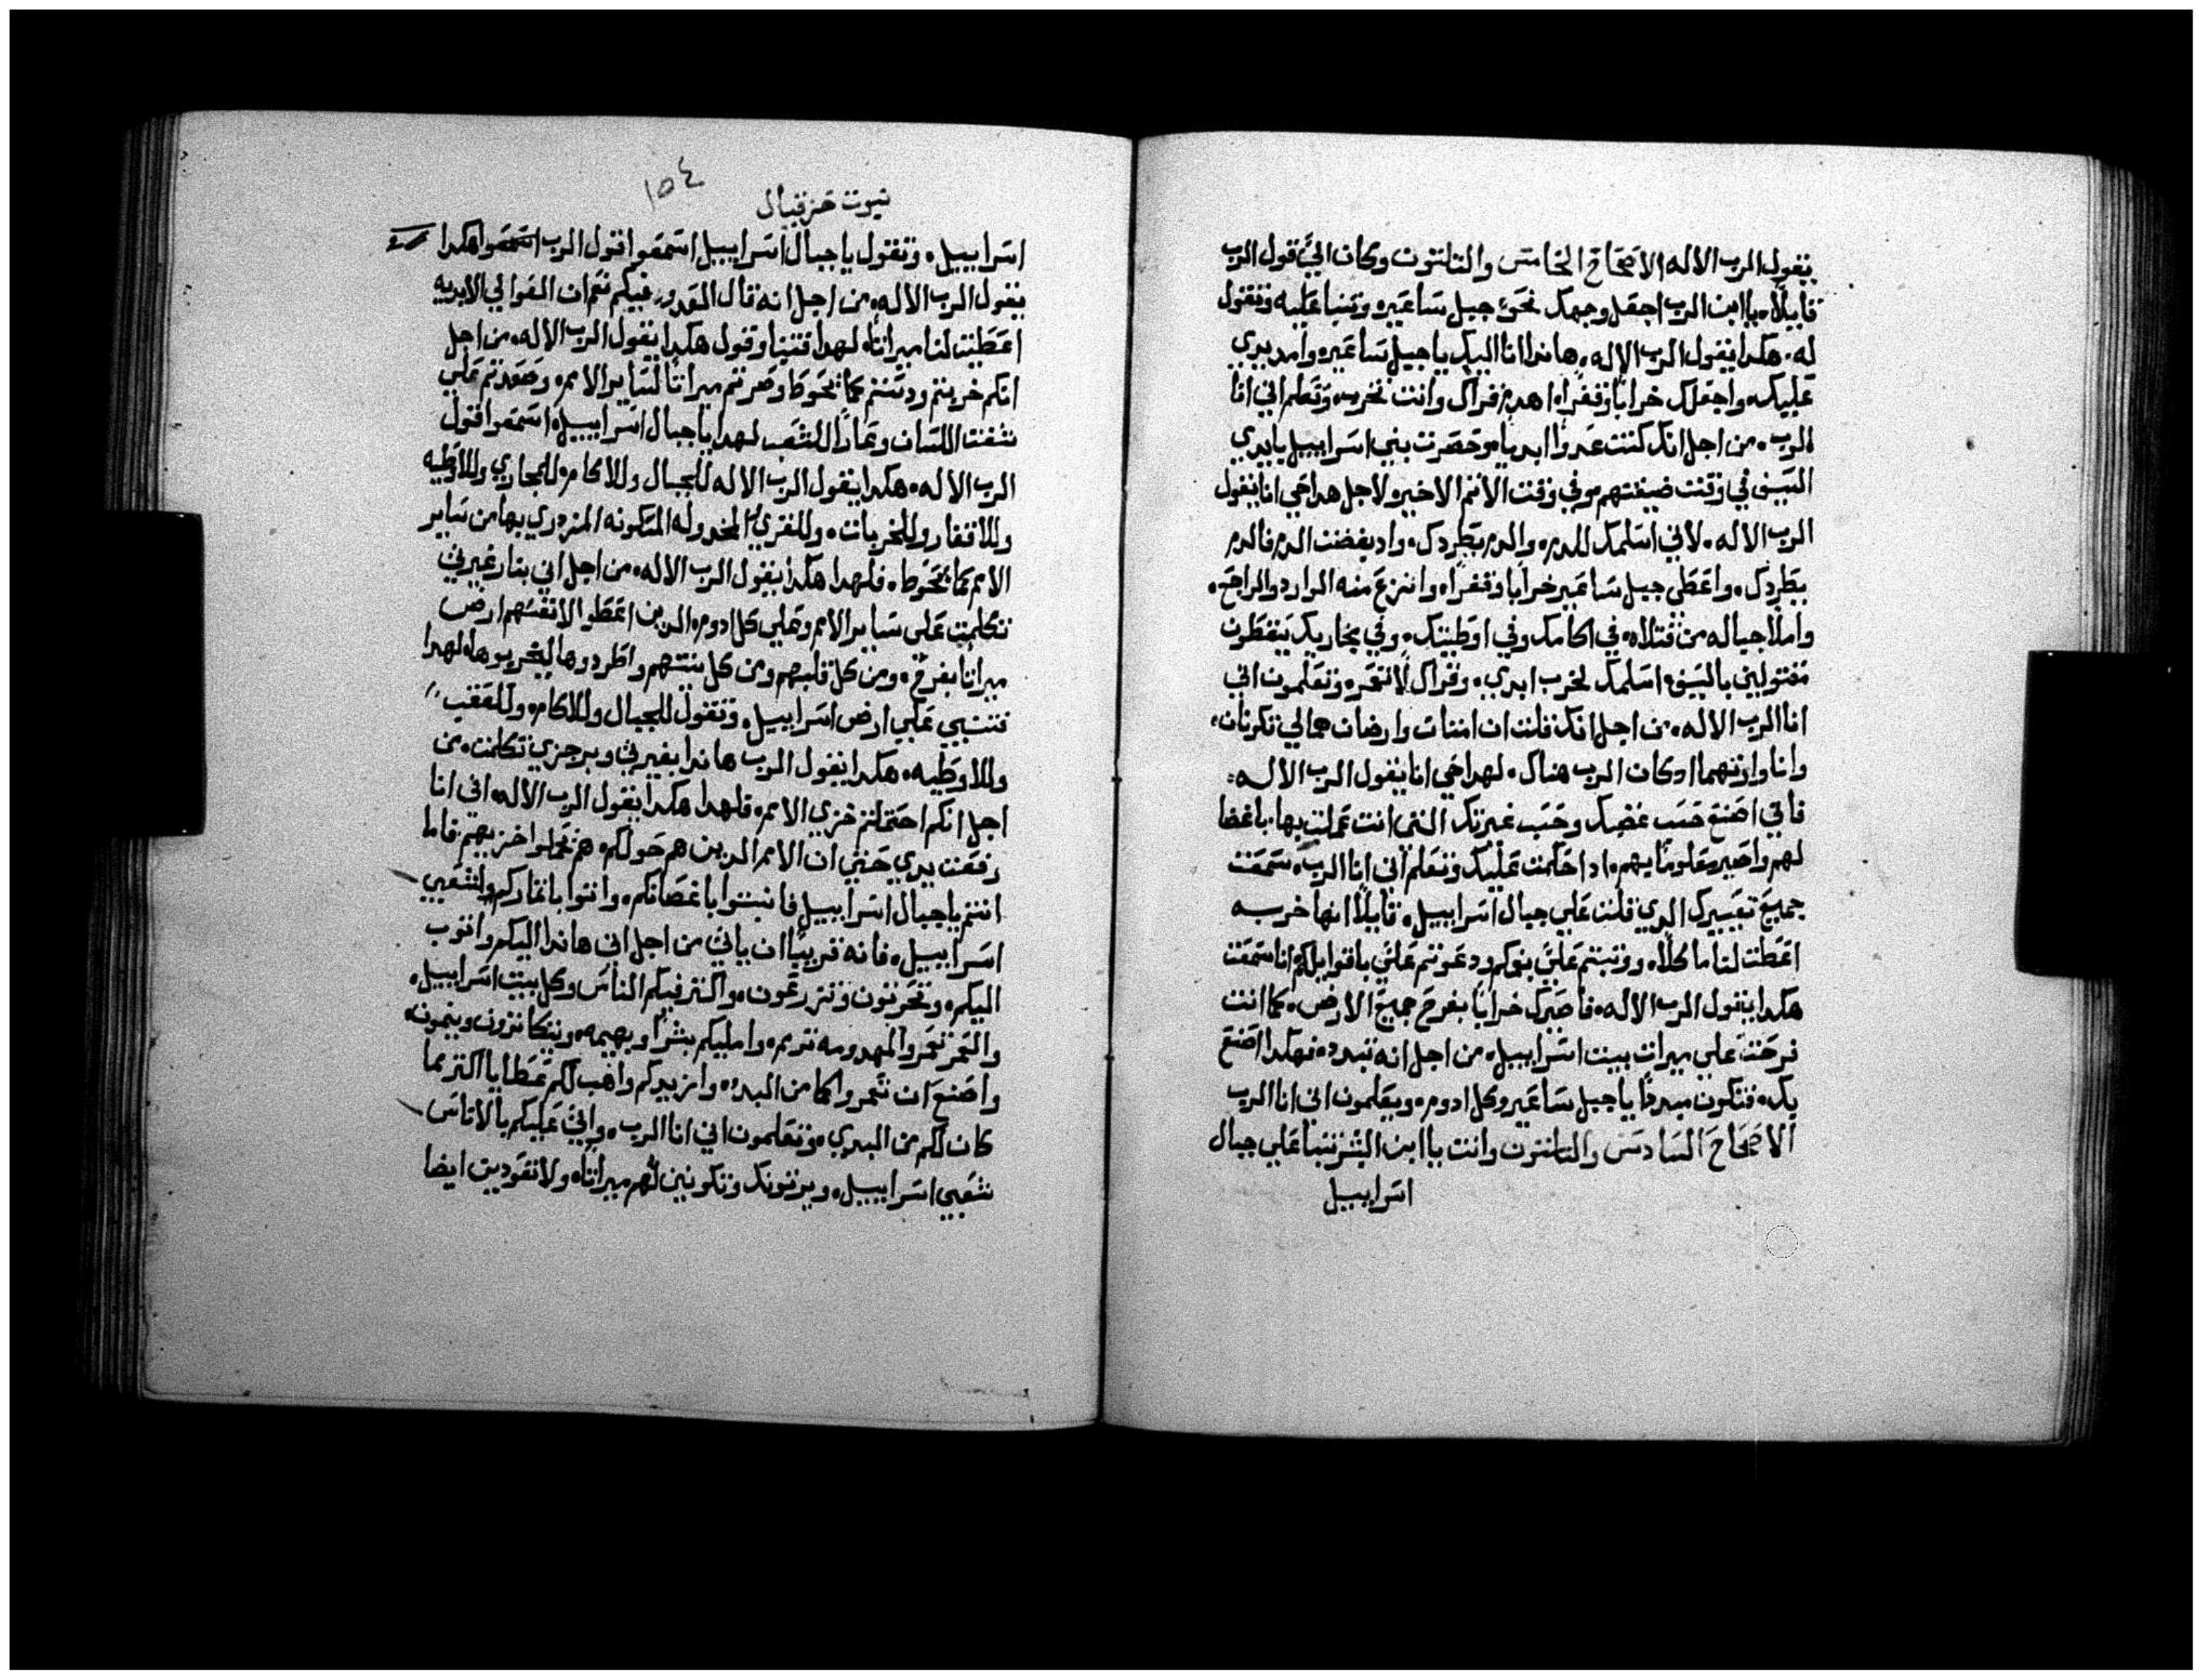 يقول الرب الاله الاصحاح الخامس والتلتون وكان اليَّ قول الرب
قايلًا. ياابن الرب اجعل وجهك نحو جبل ساعير. وتنبا عليه وتقول
له. هكدا يقول الرب الاله. هاندا انا اليك ياجبل ساعير. وامد يدي
عليك. واجعلك خرابًا وقفرًا. اهدم قراك وانت تخرب. وتعلم اني انا
الرب. من اجل انك كنت عدوًا ابديا. وحصرت بني اسراييل بايدي
السيف في وقت ضيقتهم وفي وقت الاتم الاخير. لاجل هدا حي انا يقول
الرب الاله. لاني اسلمك للدم. والدم يطردك. واد بغضت الدم فالدم
يطردك. واعطي جبل ساعير خرابا وقفرًا. وانزع منه الوارد والراجع.
واملا جباله من قتلاه. في اكامك وفي اوطيتك. وفي مجاريك يتقطون
مقتولين بالسيف. اسلمك لخرب ابدي. وقراك لا تعمر. وتعلمون اني
انا الرب الاله. من اجل انك قلت ان امتات وارضان همالي تكونان.
وانا وارتهما اد كان الرب هناك. لهدا حي انا يقول الرب الاله:
فاني اصنع حسب غضبك وحسب غيرتك التي انت عملت بها. باغضا
لهم واصير معلومًا بهم. ادا حكمت عليك وتعلم اني انا الرب. سمعت
جميع تعييرك الدي قلت علي جبال اسراييل. قايلًا انها خربه
اعطت لنا ماكلًا. ووتبتم عليَّ بفوكم ودعوتم عليَّ باقوايلكم انا سمعت
هكدا يقول الرب الاله. فاصيرك خرابًا بفرح جميع الارض. كما انت
فرحت علي ميرات بيت اسراييل. من اجل انه تبدد. فهكدا اصنع
بك. فتكون مبددًا ياجبل ساعير وكل ادوم. ويعلمون اني انا الرب
الاصحاح السادس والتلتون وانت ياابن البشر تنبا علي جبال
اسراييل
١٥٤
نبوت حزقيال
اسراييل. وتقول ياجبال اسراييل اسمعوا قول الرب اسمعوا هكدا
يقول الرب الاله. من اجل انه قال العدو. فيكم نعم ان العوالي الابديه
اعطيت لنا ميراتًا. لهدا فتنبا وقول هكدا يقول الرب الاله. من اجل
انكم خربتم ودستم كما يحوط وصرتم ميراتًا لساير الامم. وصعدتم علي
شفت اللسان وعارًا للشعب لهدا ياجبال اسراييل. اسمعوا قول
الرب الاله. هكدا يقول الرب الاله للجبال وللاكام. للمجاري وللاوطيه
وللاقفار وللخربات. وللقري المخدوله المسكونه المزدري بها من ساير
الامم مما يحوط. فلهدا هكدا يقول الرب الاله. من اجل اني بنار غيرتي
تكلمت علي ساير الامم وعلي كل ادوم. الدين اعطو الانفسهم ارضي
ميراتًا بفرح. ومن كل قلبهم ومن كل نيتهم واطردوها ليخربوها. لهدا
فتنبي علي ارض اسراييل. وتقول للجبال وللاكام. وللعقب
وللاوطيه. هكدا يقول الرب هاندا بغيرتي وبرجزي تكلمت. من
اجل انكم احتملتم خزي الامم. فلهدا هكدا يقول الرب الاله. اني انا
رفعت يدي حتي ان الامم الدين هم حولكم. هم يحملوا خزيهم. فاما
انتم ياجبال اسراييل فانبتوا باغصانكم. واتوا باتماركم ولشعبي
اسراييل. فانه قريبًا ان ياتي من اجل اني هاندا اليكم واتوب
اليكم. وتحرتون وتزرعون. واكتر فيكم الناس وكل بيت اسراييل.
والتعمر تعمر والمهدومه ترمم. وامليكم بشرًا وبهيمه. ويتكاترون وينمون.
واصنع ان تعمروا كما من البدء. وازيدكم واهب لكم عطايا اكتر مما
كان لكم من البدي. وتعلمون اني انا الرب. واتي عليكم بالاناس
شعبي اسراييل. ويرتونك وتكونين لهم ميراتًا. ولا تعودين ايضا